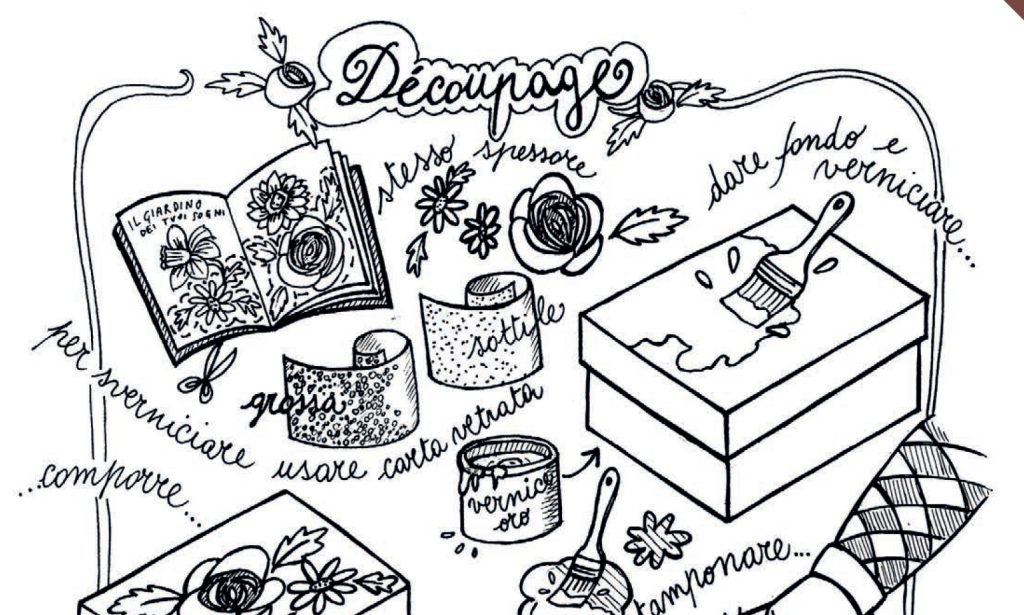 Découpage
stesso spessore
dare fondo e
verniciare....
IL GIARDINO
DEI TUOI SOGNI
sottile
grossa
per sverniciare usare carta vetrata
vernice
oro
..comporre...
tamponare...